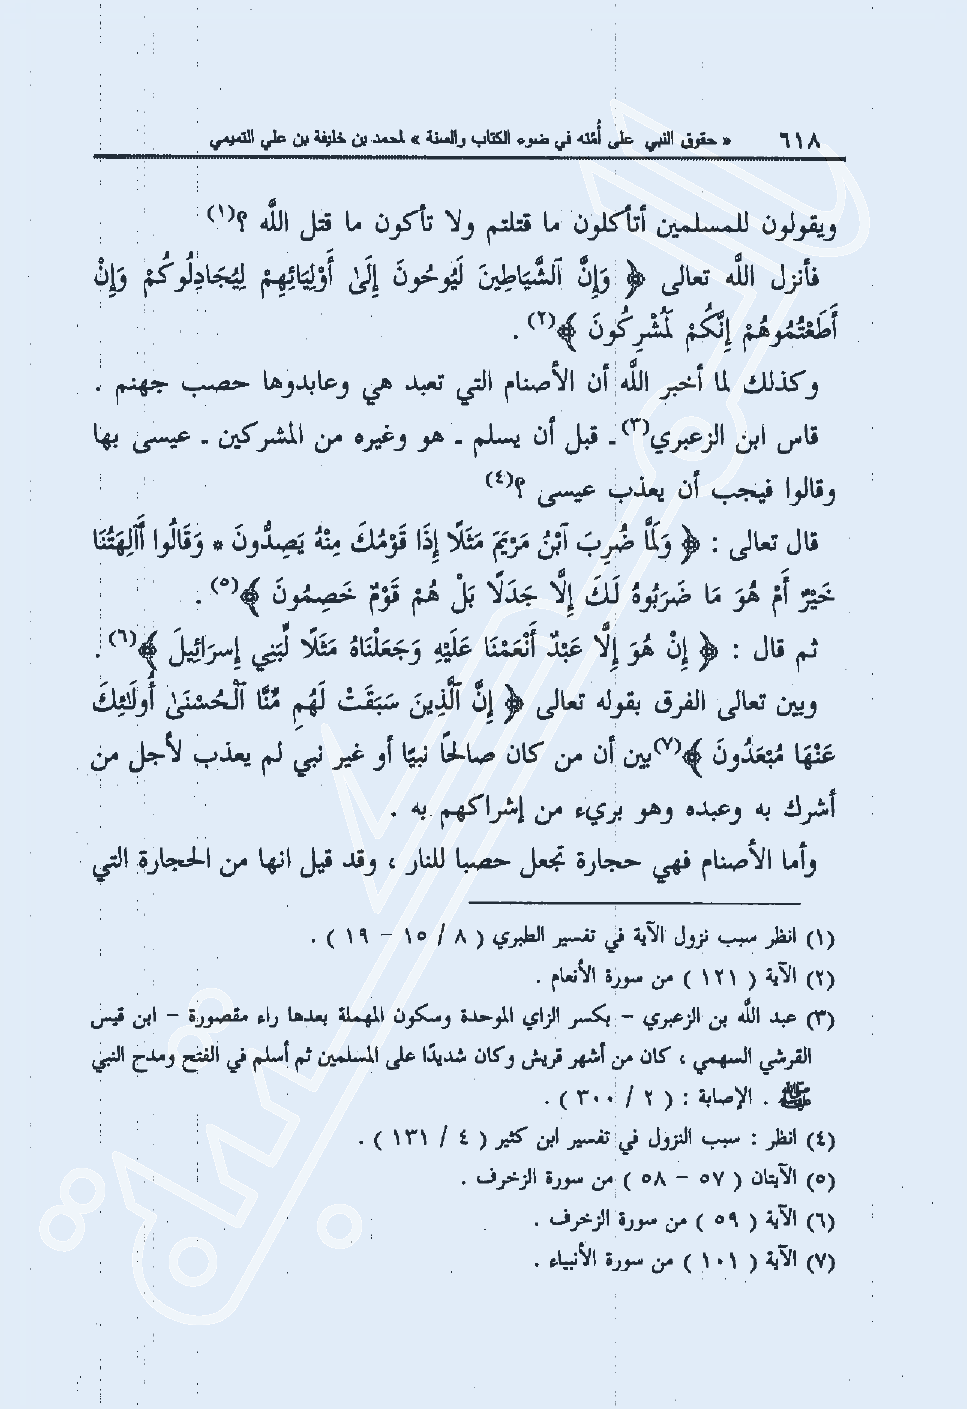 ٦١٨ « حقوق النبي على أُمَّته في ضوء الكتاب والسنة » لمحمد بن خليفة بن علي التميمي
ويقولون للمسلمين أتأكلون ما قتلتم ولا تأكون ما قتل الله ؟(١)
فأنزل اللَّه تعالى ﴿ وَإِنَّ ٱلشَّيَاطِينَ لَيُوحُونَ إِلَىٰ أَوْلِيَائِهِمْ لِيُجَادِلُوكُمْ وَإِنْ
أَطَعْتُمُوهُمْ إِنَّكُمْ لَمُشْرِكُونَ ﴾(٢) .
وكذلك لما أخبر اللَّه أن الأصنام التي تعبد هي وعابدوها حصب جهنم .
قاس ابن الزعبري(٣) ـ قبل أن يسلم ـ هو وغيره من المشركين ـ عيسى بها
وقالوا فيجب أن يعذب عيسى ؟(٤)
قال تعالى : ﴿ وَلَمَّا ضُرِبَ ٱبْنُ مَرْيَمَ مَثَلًا إِذَا قَوْمُكَ مِنْهُ يَصِدُّونَ * وَقَالُوا أَآلِهَتُنَا
خَيْرٌ أَمْ هُوَ مَا ضَرَبُوهُ لَكَ إِلَّا جَدَلًا بَلْ هُمْ قَوْمٌ خَصِمُونَ ﴾(٥) .
ثم قال : ﴿ إِنْ هُوَ إِلَّا عَبْدٌ أَنْعَمْنَا عَلَيْهِ وَجَعَلْنَاهُ مَثَلًا لِّبَنِي إِسرَائِيلَ ﴾(٦) .
وبين تعالى الفرق بقوله تعالى ﴿ إِنَّ ٱلَّذِينَ سَبَقَتْ لَهُم مِّنَّا ٱلْحُسْنَىٰ أُولَٰئِكَ
عَنْهَا مُبْعَدُونَ ﴾(٧)بين أن من كان صالحًا نبيًا أو غير نبي لم يعذب لأجل من
أشرك به وعبده وهو بريء من إشراكهم به .
وأما الأصنام فهي حجارة تجعل حصبا للنار ، وقد قيل انها من الحجارة التي
(١) انظر سبب نزول الآية في تفسير الطبري ( ٨ / ١٥ - ١٩ ) .
(٢) الآية ( ١٢١ ) من سورة الأنعام .
(٣) عبد اللَّه بن الزعبري - بكسر الزاي الموحدة وسكون المهملة بعدها راء مقصورة - ابن قيس
القرشي السهمي ، كان من أشهر قريش وكان شديدًا على المسلمين ثم أسلم في الفتح ومدح النبي
ﷺ . الإصابة : ( ٢ / ٣٠٠ ) .
(٤) انظر : سبب النزول في تفسير ابن كثير ( ٤ / ١٣١ ) .
(٥) الآيتان ( ٥٧ - ٥٨ ) من سورة الزخرف .
(٦) الآية ( ٥٩ ) من سورة الزخرف .
(٧) الآية ( ١٠١ ) من سورة الأنبياء .